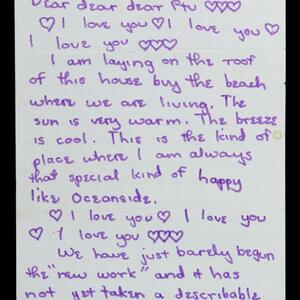 Dear dear dear Ptu ♡♡♡
♡ I love you ♡ I love you ♡
I love you ♡♡♡
I am laying on the roof
of this house buy the beach
where we are living. The
sun is very warm. The breeze
is cool. This is the kind of
place where I am always
that special kind of happy
like Oceanside.
♡ I love you ♡ I love you
♡ I love you ♡♡♡
We have just barely begun
the "new work" and it has
not yet taken a describable